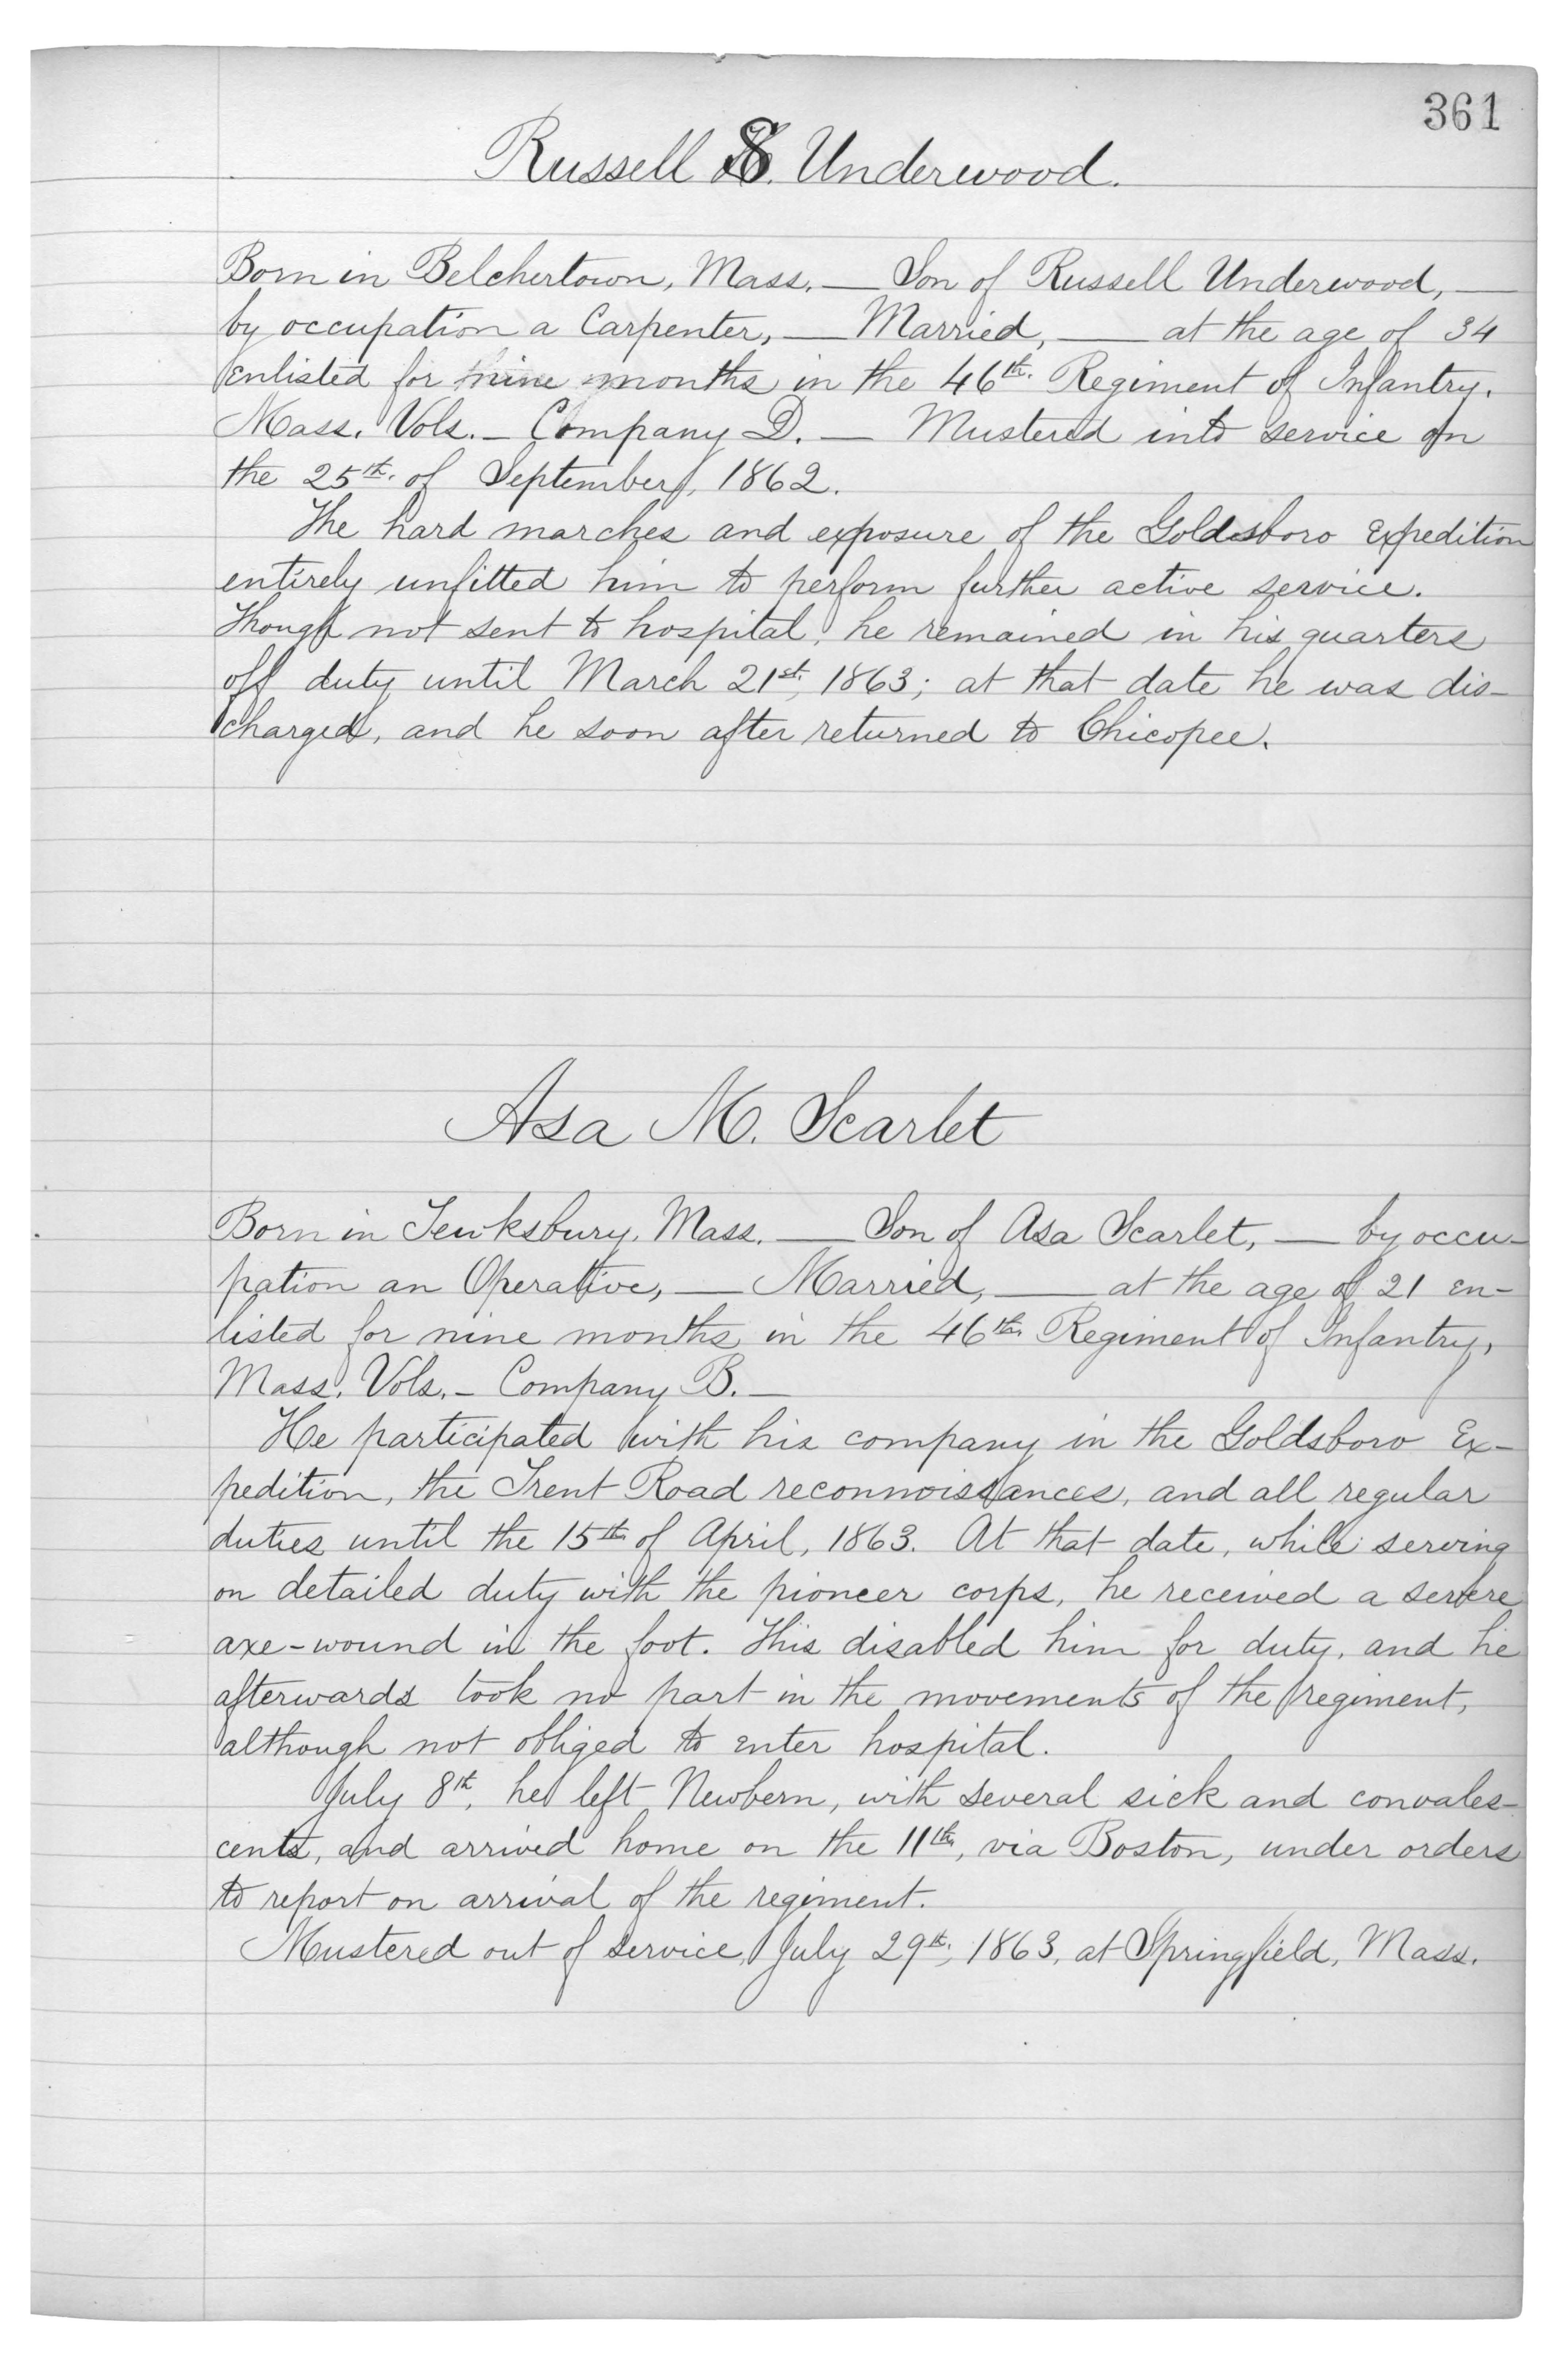 361
Russell S. Underwood.
Born in Belchertown, Mass. — Son of Russell Underwood, —
by occupation a Carpenter, — Married, — at the age of 34
enlisted for nine months in the 46th. Regiment of Infantry.
Mass. Vols. — Company D. — Mustered into service on
the 25th. of September, 1862.
The hard marches and exposure of the Goldsboro Expedition
entirely unfitted him to perform further active service.
Though not sent to hospital, he remained in his quarters
off duty until March 21st, 1863; at that date he was dis-
charged, and he soon after returned to Chicopee.
Asa M. Scarlet
Born in Tewksbury, Mass. — Son of Asa Scarlet, — by occu-
pation an Operative, — Married, — at the age of 21 en-
listed for nine months in the 46th. Regiment of Infantry,
Mass. Vols. — Company B. —
He participated with his company in the Goldsboro Ex-
pedition, the Trent Road reconnoissances, and all regular
duties until the 15th of April, 1863. At that date, while serving
on detailed duty with the pioneer corps, he received a severe
axe-wound in the foot. This disabled him for duty, and he
afterwards took no part in the movements of the regiment,
although not obliged to enter hospital.
July 8th, he left Newbern, with several sick and convales-
cents, and arrived home on the 11th, via Boston, under orders
to report on arrival of the regiment.
Mustered out of service, July 29th, 1863, at Springfield, Mass.